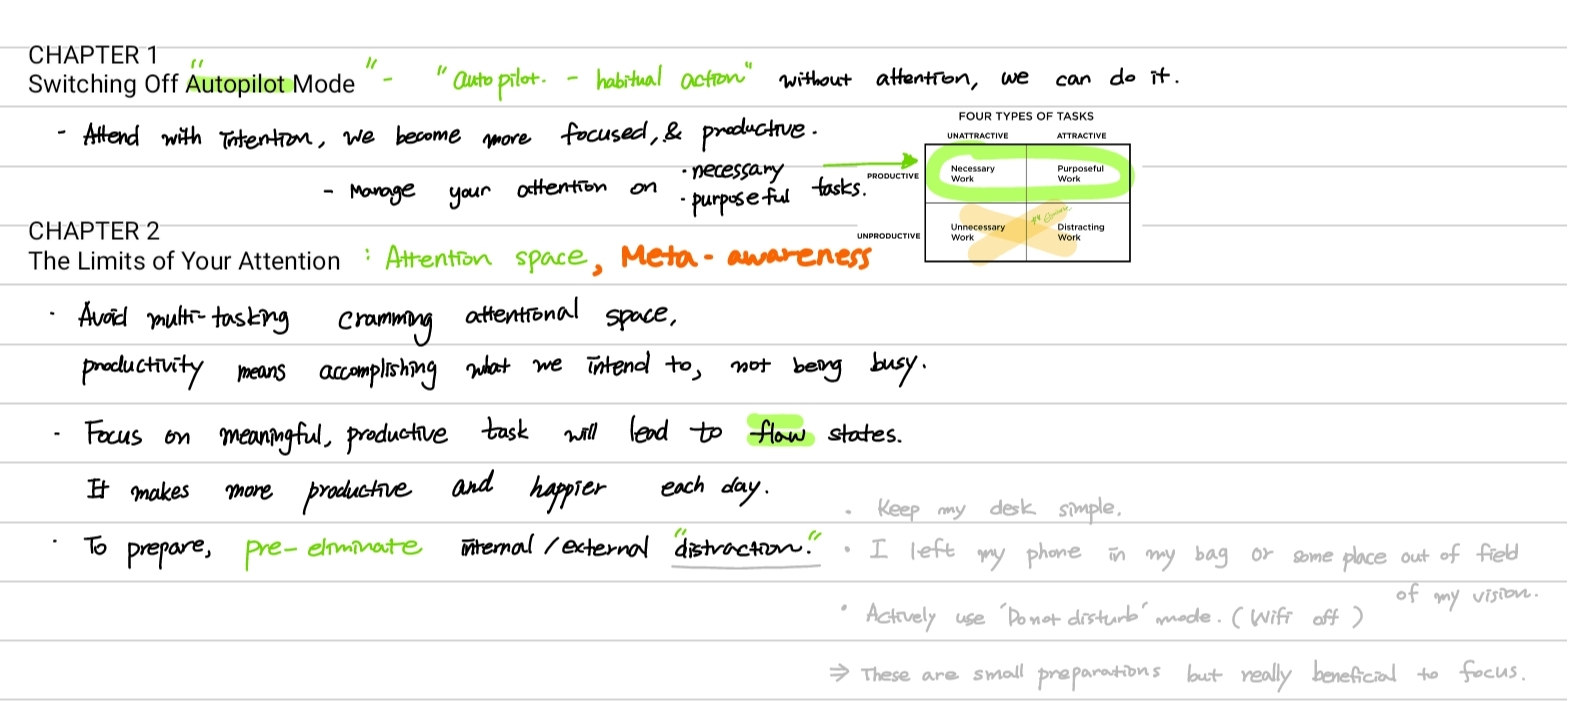 CHAPTER 1
Switching Off "Autopilot Mode" - "autopilot. - habitual action" without attention, we can do it.
- Attend with intention, we become more focused, & productive.
- Manage your attention on · necessary · purposeful tasks.
FOUR TYPES OF TASKS
UNATTRACTIVE ATTRACTIVE
PRODUCTIVE
Necessary Work
Purposeful Work
UNPRODUCTIVE
Unnecessary Work
Distracting Work
CHAPTER 2
The Limits of Your Attention : Attention space, Meta-awareness
· Avoid multi-tasking cramming attentional space,
productivity means accomplishing what we intend to, not being busy.
- Focus on meaningful, productive task will lead to flow states.
It makes more productive and happier each day.
· To prepare, pre-eliminate internal/external "distraction."
· Keep my desk simple.
· I left my phone in my bag or some place out of field
of my vision.
· Actively use 'Do not disturb' mode. (Wifi off)
⇒ These are small preparations but really beneficial to focus.